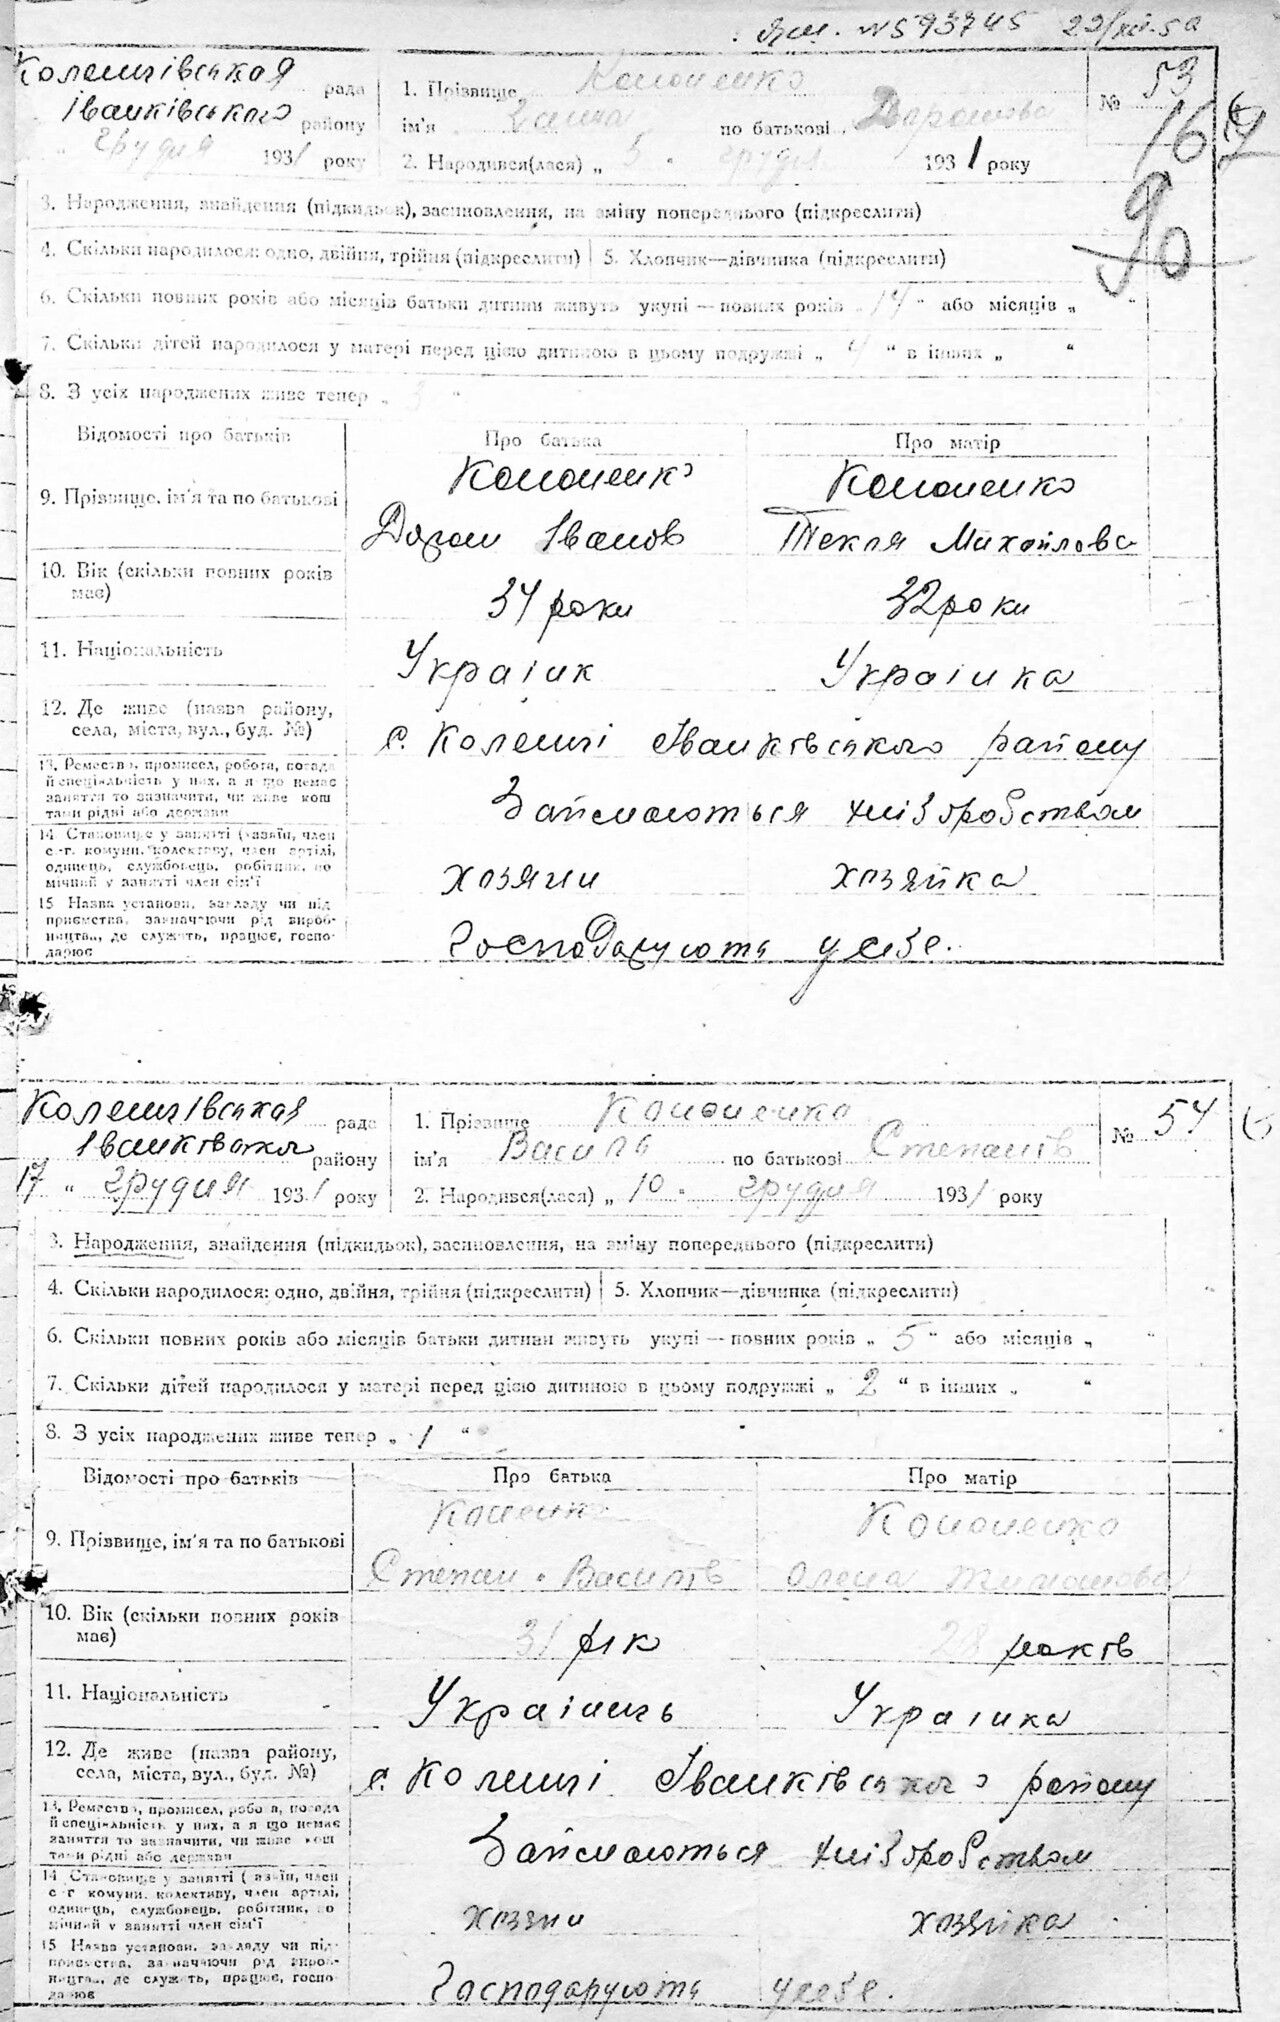 №593745 22/XII-50
Коленцівська рада
Іванківського району
" грудня 1931 року
1. Прізвище Кононенко
ім'я Ганна по батькові
2. Народився(лася) „ 5 " грудня 1931 року
№ 53
167
90
3. Народження, знайдення (підкидьок), засиновлення, на зміну попереднього (підкреслити)
4. Скільки народилося: одно, двійня, трійня (підкреслити) 5. Хлопчик—дівчинка (підкреслити)
6. Скільки повних років або місяців батьки дитини живуть укупі — повних років „ 14 " або місяців „ "
7. Скільки дітей народилося у матері перед цією дитиною в цьому подружжі „ 4 " в інших „ "
8. З усіх народжених живе тепер „ 3 "
Відомості про батьків Про батька Про матір
9. Прізвище, ім'я та по батькові Кононенко Кононенко
Іванов Текля Михайлова
10. Вік (скільки повних років має) 34 роки 32 роки
11. Національність Украінк Украінка
12. Де живе (назва району, села, міста, вул., буд. №) с. Коленці Іванківського району
13. Ремество, промисел, робота, посада й спеціяльність у них, а якщо немає заняття то зазначити, чи живе кош тами рідні або держави Займаються хліборобством
14 Становище у занятті (хазяїн, член с-г. комуни, колективу, член артілі, одинець, службовець, робітник, помічний у занятті член сім'ї хозяин хозяйка
15 Назва установи, закладу чи підприємства, зазначаючи рід виробництва, де служить, працює, господарює Господарують у себе.
Коленцівська рада
Іванківського району
17 " грудня 1931 року
1. Прізвище Кононенко
ім'я Василь по батькові Степанів
2. Народився(лася) „ 10 " грудня 1931 року
№ 54
3. Народження, знайдення (підкидьок), засиновлення, на зміну попереднього (підкреслити)
4. Скільки народилося: одно, двійня, трійня (підкреслити) 5. Хлопчик—дівчинка (підкреслити)
6. Скільки повних років або місяців батьки дитини живуть укупі — повних років „ 5 " або місяців „ "
7. Скільки дітей народилося у матері перед цією дитиною в цьому подружжі „ 2 " в інших „ "
8. З усіх народжених живе тепер „ 1 "
Відомості про батьків Про батька Про матір
9. Прізвище, ім'я та по батькові Кононенко
Степан Василів Олена Тимошова
10. Вік (скільки повних років має) 31 рік 28 років
11. Національність Украінець Украінка
12. Де живе (назва району, села, міста, вул., буд. №) с. Коленці Іванківського району
13. Ремество, промисел, робота, посада й спеціяльність у них, а якщо немає заняття то зазначити, чи живе кош тами рідні або держави Займаються хліборобством
14 Становище у занятті (хазяїн, член с-г комуни, колективу, член артілі, одинець, службовець, робітник, помічний у занятті член сім'ї хозяин хозяйка
15 Назва установи, закладу чи підприємства, зазначаючи рід виробництва, де служить, працює, господарює Господарують у себе.